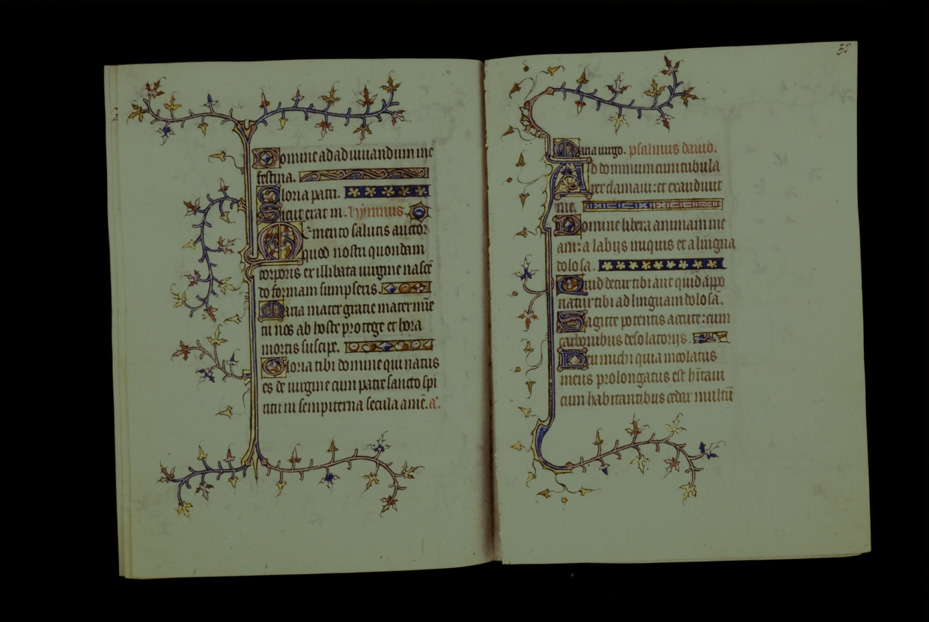 Domine ad adiuuandum me
festina.
Gloria patri.
Sicut erat in. hymnus.
Memento salutis auctor
quod nostri quondam
corporis ex illibata uirgine nascē
do formam sumpseris.
Maria mater gratie mater mīe
tu nos ab hoste protege et hora
mortis suscipe.
Gloria tibi domine qui natus
es de uirgine cum patre sancto spi
ritu in sempiterna secula amē. a.
35
Maria uirgo. psalmus dauid.
Ad dominum cum tribula
rer clamaui: et exaudiuit
me.
Domine libera animam me
am: a labijs iniquis et a lingua
dolosa.
Quid detur tibi aut quid appo
natur tibi ad linguam dolosam.
Sagitte potentis acute: cum
carbonibus desolatorijs.
Heu michi quia incolatus
meus prolongatus est hītaui
cum habitantibus cedar multū